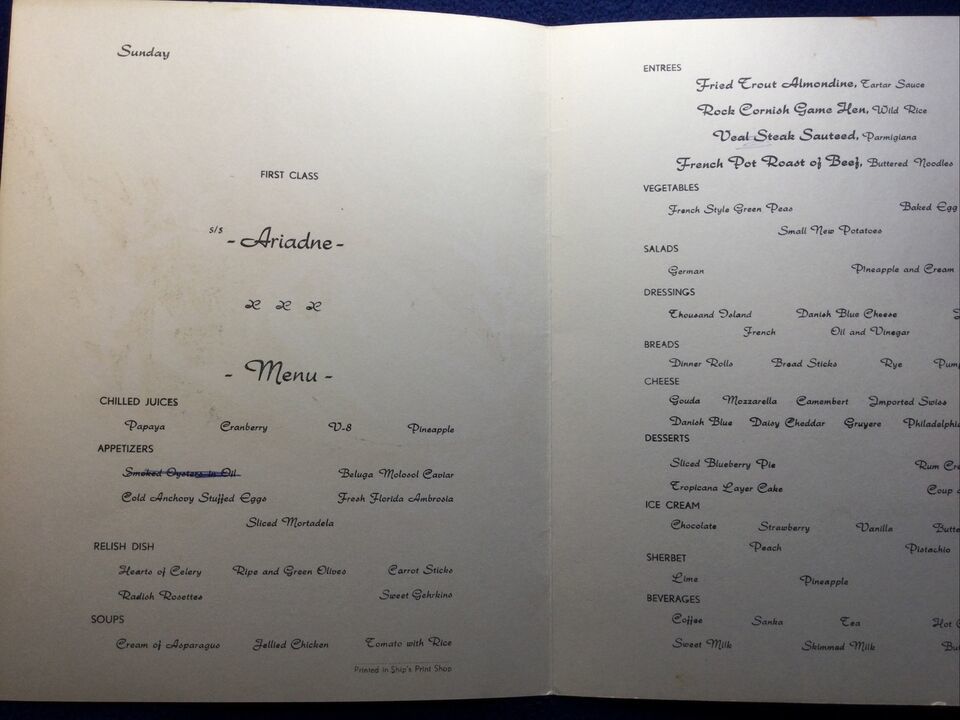 Sunday
FIRST CLASS
s/s - Ariadne -
- Menu -
CHILLED JUICES
Papaya Cranberry V-8 Pineapple
APPETIZERS
Smoked Oysters in Oil Beluga Molosol Caviar
Cold Anchovy Stuffed Eggs Fresh Florida Ambrosia
Sliced Mortadela
RELISH DISH
Hearts of Celery Ripe and Green Olives Carrot Sticks
Radish Rosettes Sweet Gehrkins
SOUPS
Cream of Asparagus Jellied Chicken Tomato with Rice
Printed in Ship's Print Shop
ENTREES
Fried Trout Almondine, Tartar Sauce
Rock Cornish Game Hen, Wild Rice
Veal Steak Sauteed, Parmigiana
French Pot Roast of Beef, Buttered Noodles
VEGETABLES
French Style Green Peas Baked Egg
Small New Potatoes
SALADS
German Pineapple and Cream
DRESSINGS
Thousand Island Danish Blue Cheese
French Oil and Vinegar
BREADS
Dinner Rolls Bread Sticks Rye Pump
CHEESE
Gouda Mozzarella Camembert Imported Swiss
Danish Blue Daisy Cheddar Gruyere Philadelphi
DESSERTS
Sliced Blueberry Pie Rum Cr
Tropicana Layer Cake Coup
ICE CREAM
Chocolate Strawberry Vanilla Butte
Peach Pistachio
SHERBET
Lime Pineapple
BEVERAGES
Coffee Sanka Tea Hot
Sweet Milk Skimmed Milk